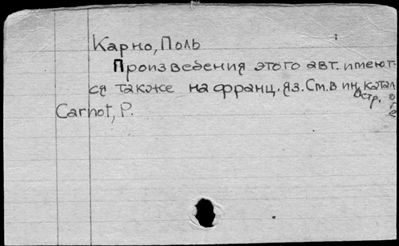 Карно, Поль
Произведения этого авт. имеют-
ся также на франц. яз. См. в ин. катал
остр.
Carnot, P.